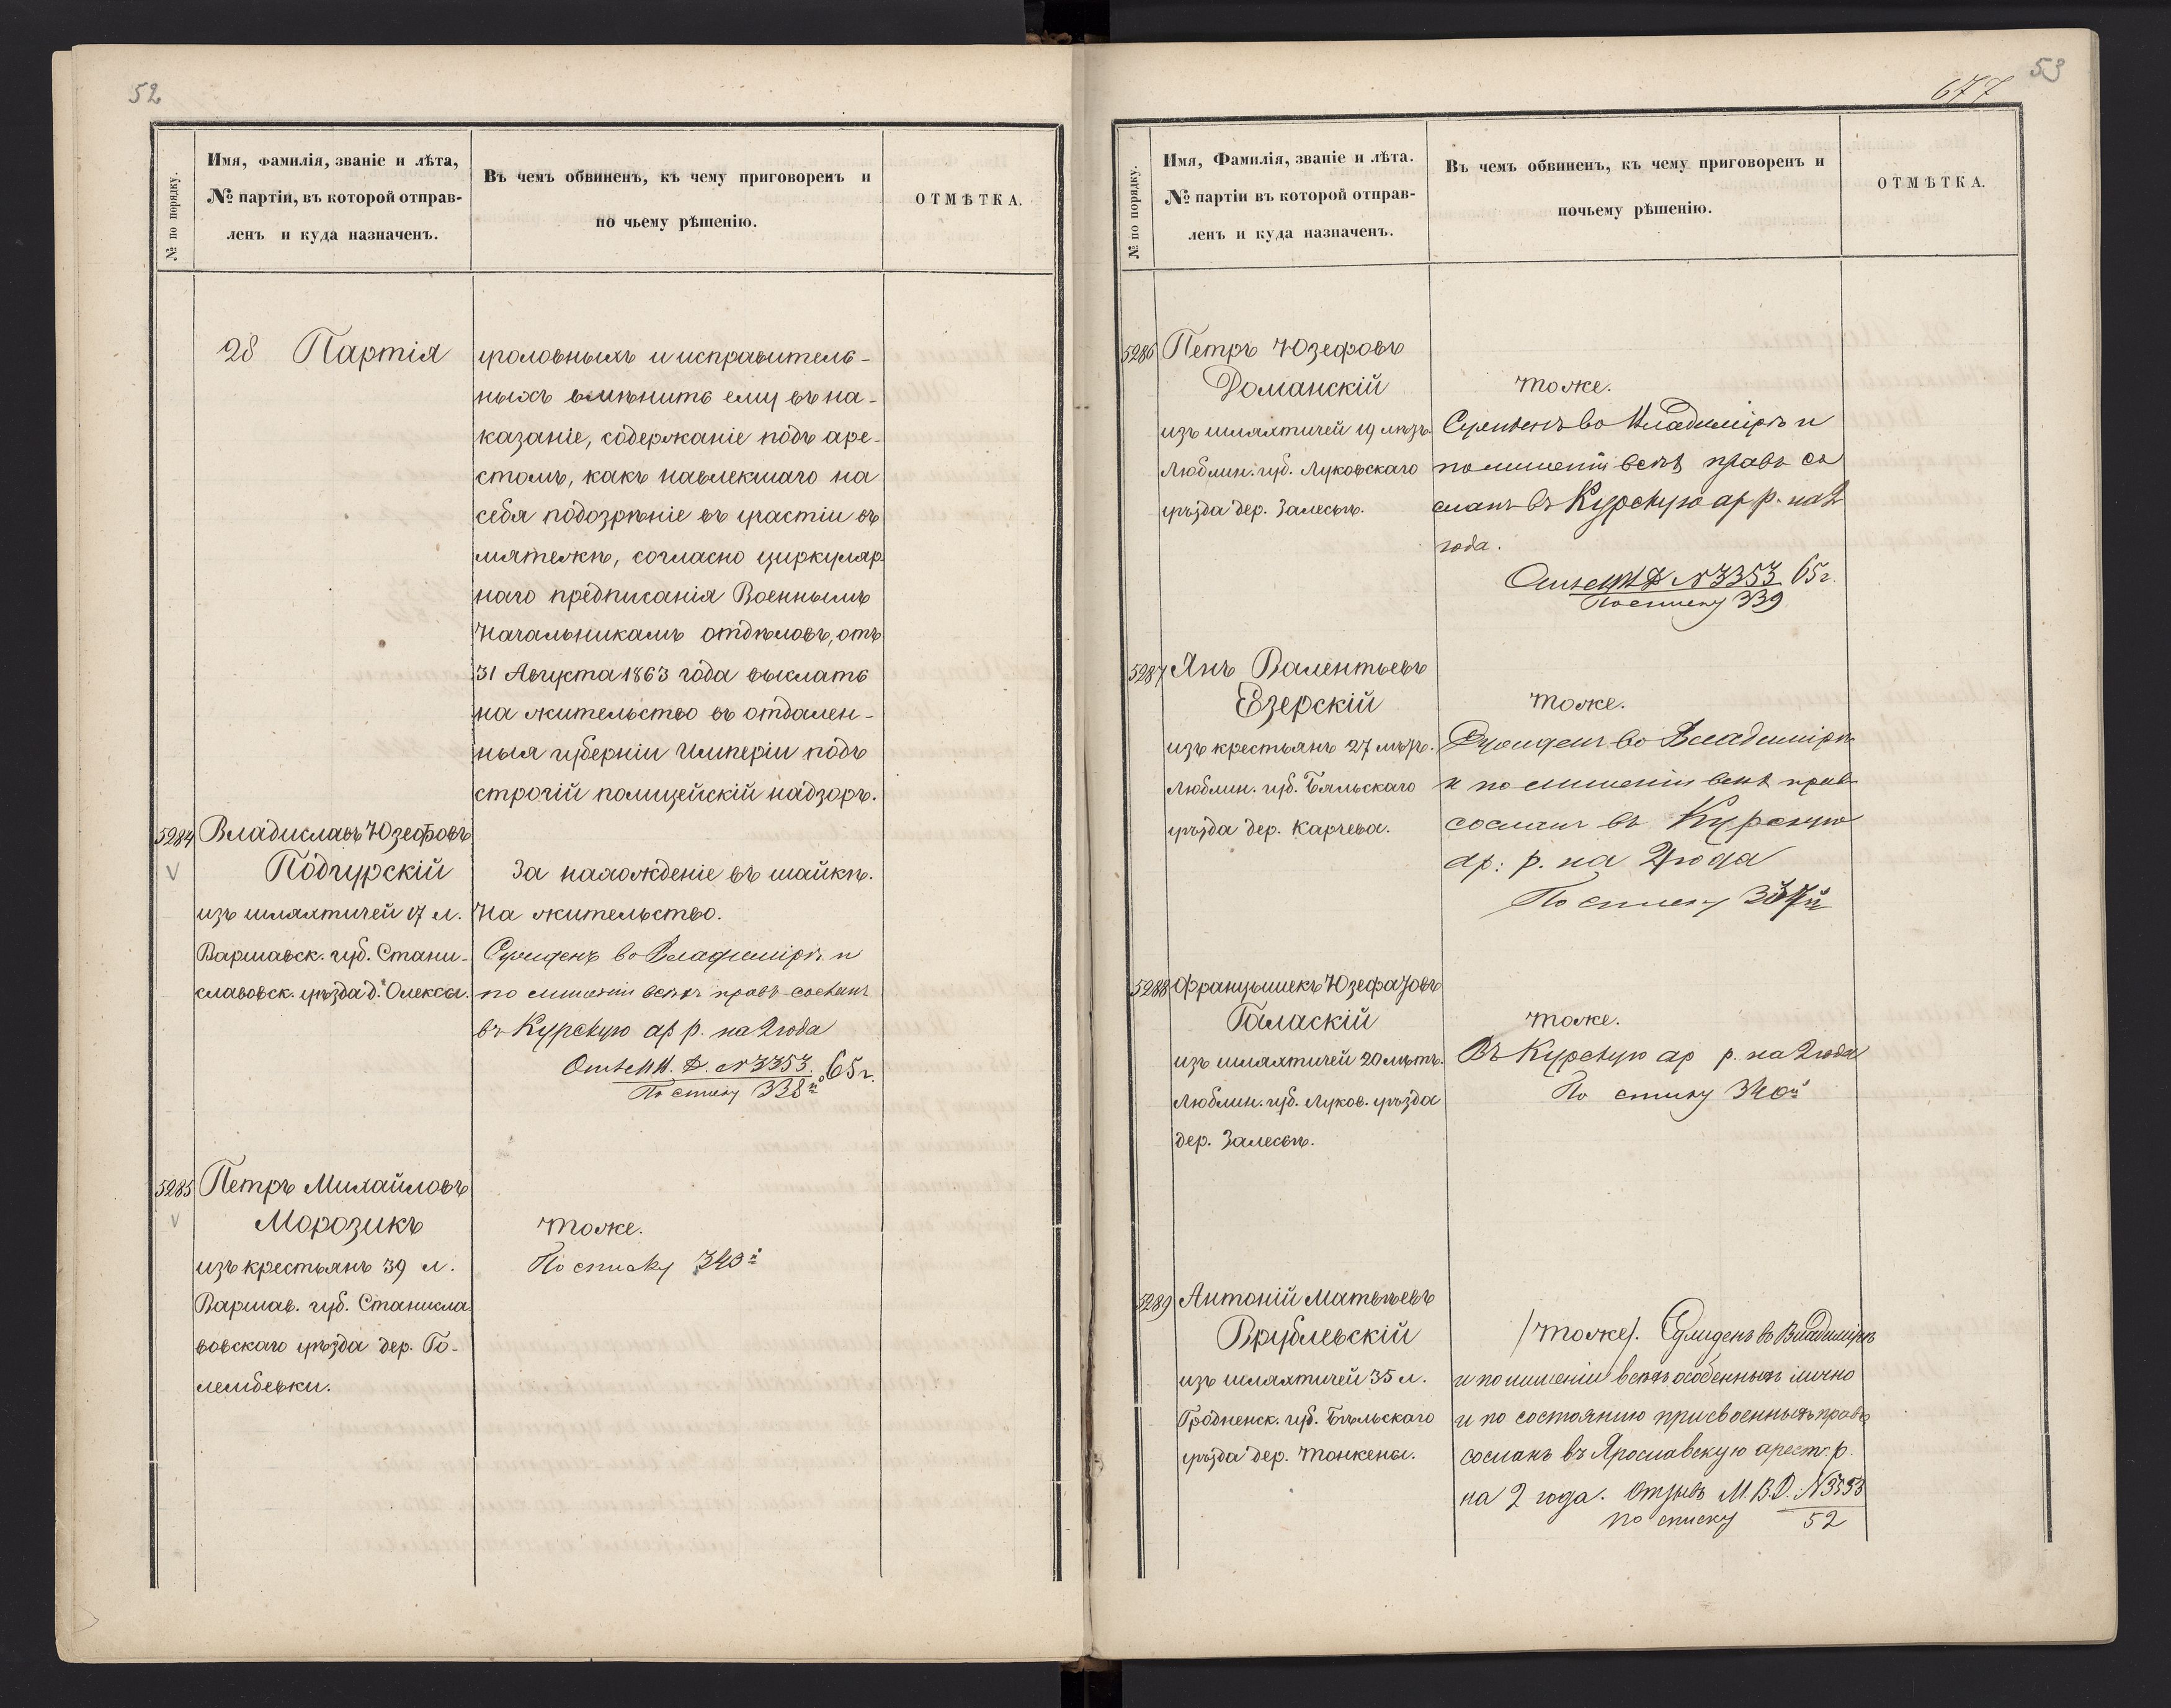 52
№ по порядку.
Имя, Фамилія, званіе и лѣта,
№ партіи, въ которой отправ-
ленъ и куда назначенъ.
Въ чемъ обвиненъ, къ чему приговоренъ и
по чьему рѣшенію.
ОТМѢТКА.
28 Партія
уголовныхъ и исправитель-
ныхъ вмѣнить ему въ на-
казаніе, содержаніе подъ аре-
стомъ, какъ навлекшаго на
себя подозрѣніе въ участіи въ
мятежѣ, согласно циркуляр-
наго предписанія Военнымъ
Начальникамъ отдѣловъ, отъ
31 Августа 1863 года выслать
на жительство въ отдален-
ныя губерніи Имперіи подъ
строгій полицейскій надзоръ.
5284 Владиславъ Юзефовъ
Подгурскій
изъ шляхтичей 17 л.
Варшавск. губ. Стани-
славовск. уѣзда д. Олексы.
За нахожденіе въ шайкѣ.
На жительство.
Сужденъ во Владимірѣ и
по лишеніи всѣхъ правъ сосланъ
въ Курскую ар р. на 2 года
№ 3353 65 г.
По списку 338й
5285 Петръ Михайловъ
Морозикъ
изъ крестьянъ 39 л.
Варшав. губ. Станисла
вовскаго уѣзда дер. Го-
лембевки.
тоже.
По списку 343й
53
677
№ по порядку.
Имя, Фамилія, званіе и лѣта.
№ партіи въ которой отправ-
ленъ и куда назначенъ.
Въ чемъ обвиненъ, къ чему приговоренъ и
почьему рѣшенію.
ОТМѢТКА.
5286 Петръ Юзефовъ
Доманскій
изъ шляхтичей 19 лѣтъ
Люблин. губ. Луковскаго
уѣзда дер. Залесье.
тоже.
Сужденъ во Владимірѣ и
по лишеніи всѣхъ правъ со
сланъ въ Курскую ар р. на 2
года.
№ 3353 65 г.
По списку 339
5287 Янъ Валентьевъ
Езерскій
изъ крестьянъ 27 лѣтъ.
Люблин. губ. Бяльскаго
уѣзда дер. Карчева.
тоже.
Сужденъ во Владимірѣ
и по лишеніи всѣхъ правъ
сосланъ въ Курскую
ар: р. на 2 года
По списку
5288 Францышекъ Юзефатовъ
Галаскій
изъ шляхтичей 20 лѣтъ.
Люблин. губ. Луков. уѣзда
дер. Залесье.
тоже.
Въ Курскую ар р. на 2 года
По списку 340й
5289 Антоній Матвѣевъ
Врублевскій
изъ шляхтичей 35 л.
Гродненск. губ. Бѣльскаго
уѣзда дер. Тонкены.
/тоже/. Сужденъ во Владимірѣ
и по лишеніи всѣхъ особенныхъ лично
и по состоянію присвоенныхъ правъ
сосланъ въ Ярославскую арест. р.
на 2 года. Отзывъ М.В.Д. № 3353
по списку 52